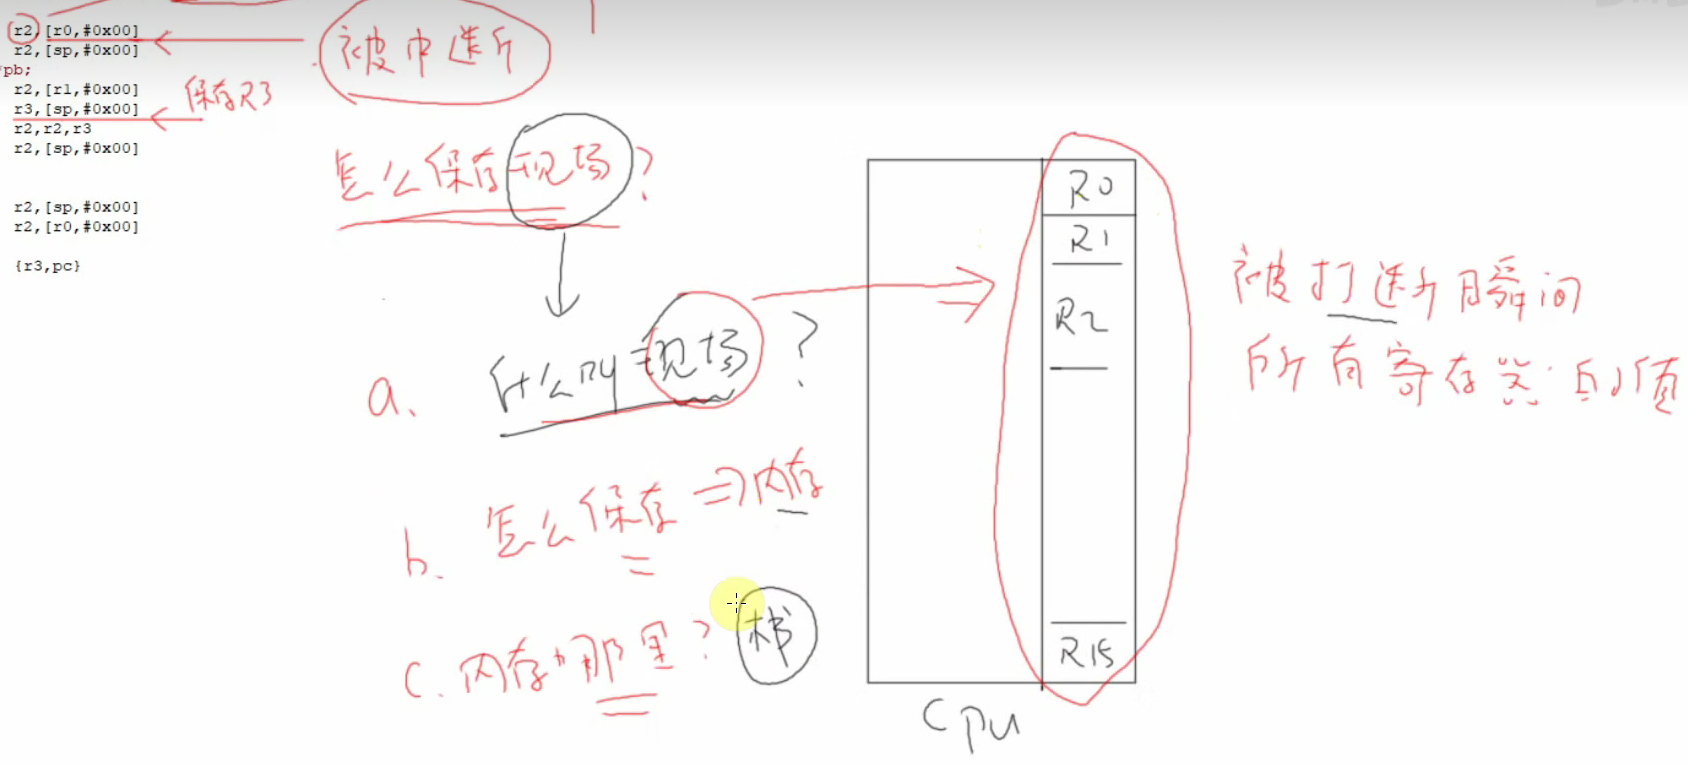 r2,[r0,#0x00]
r2,[sp,#0x00]
pb;
r2,[r1,#0x00]
r3,[sp,#0x00]
r2,r2,r3
r2,[sp,#0x00]
r2,[sp,#0x00]
r2,[r0,#0x00]
{r3,pc}
被中断
保存R3
怎么保存现场?
a. 什么叫现场?
b. 怎么保存⇒内存
c. 内存 那里? 栈
R0
R1
R2
R15
CPU
被打断瞬间
所有寄存器的值